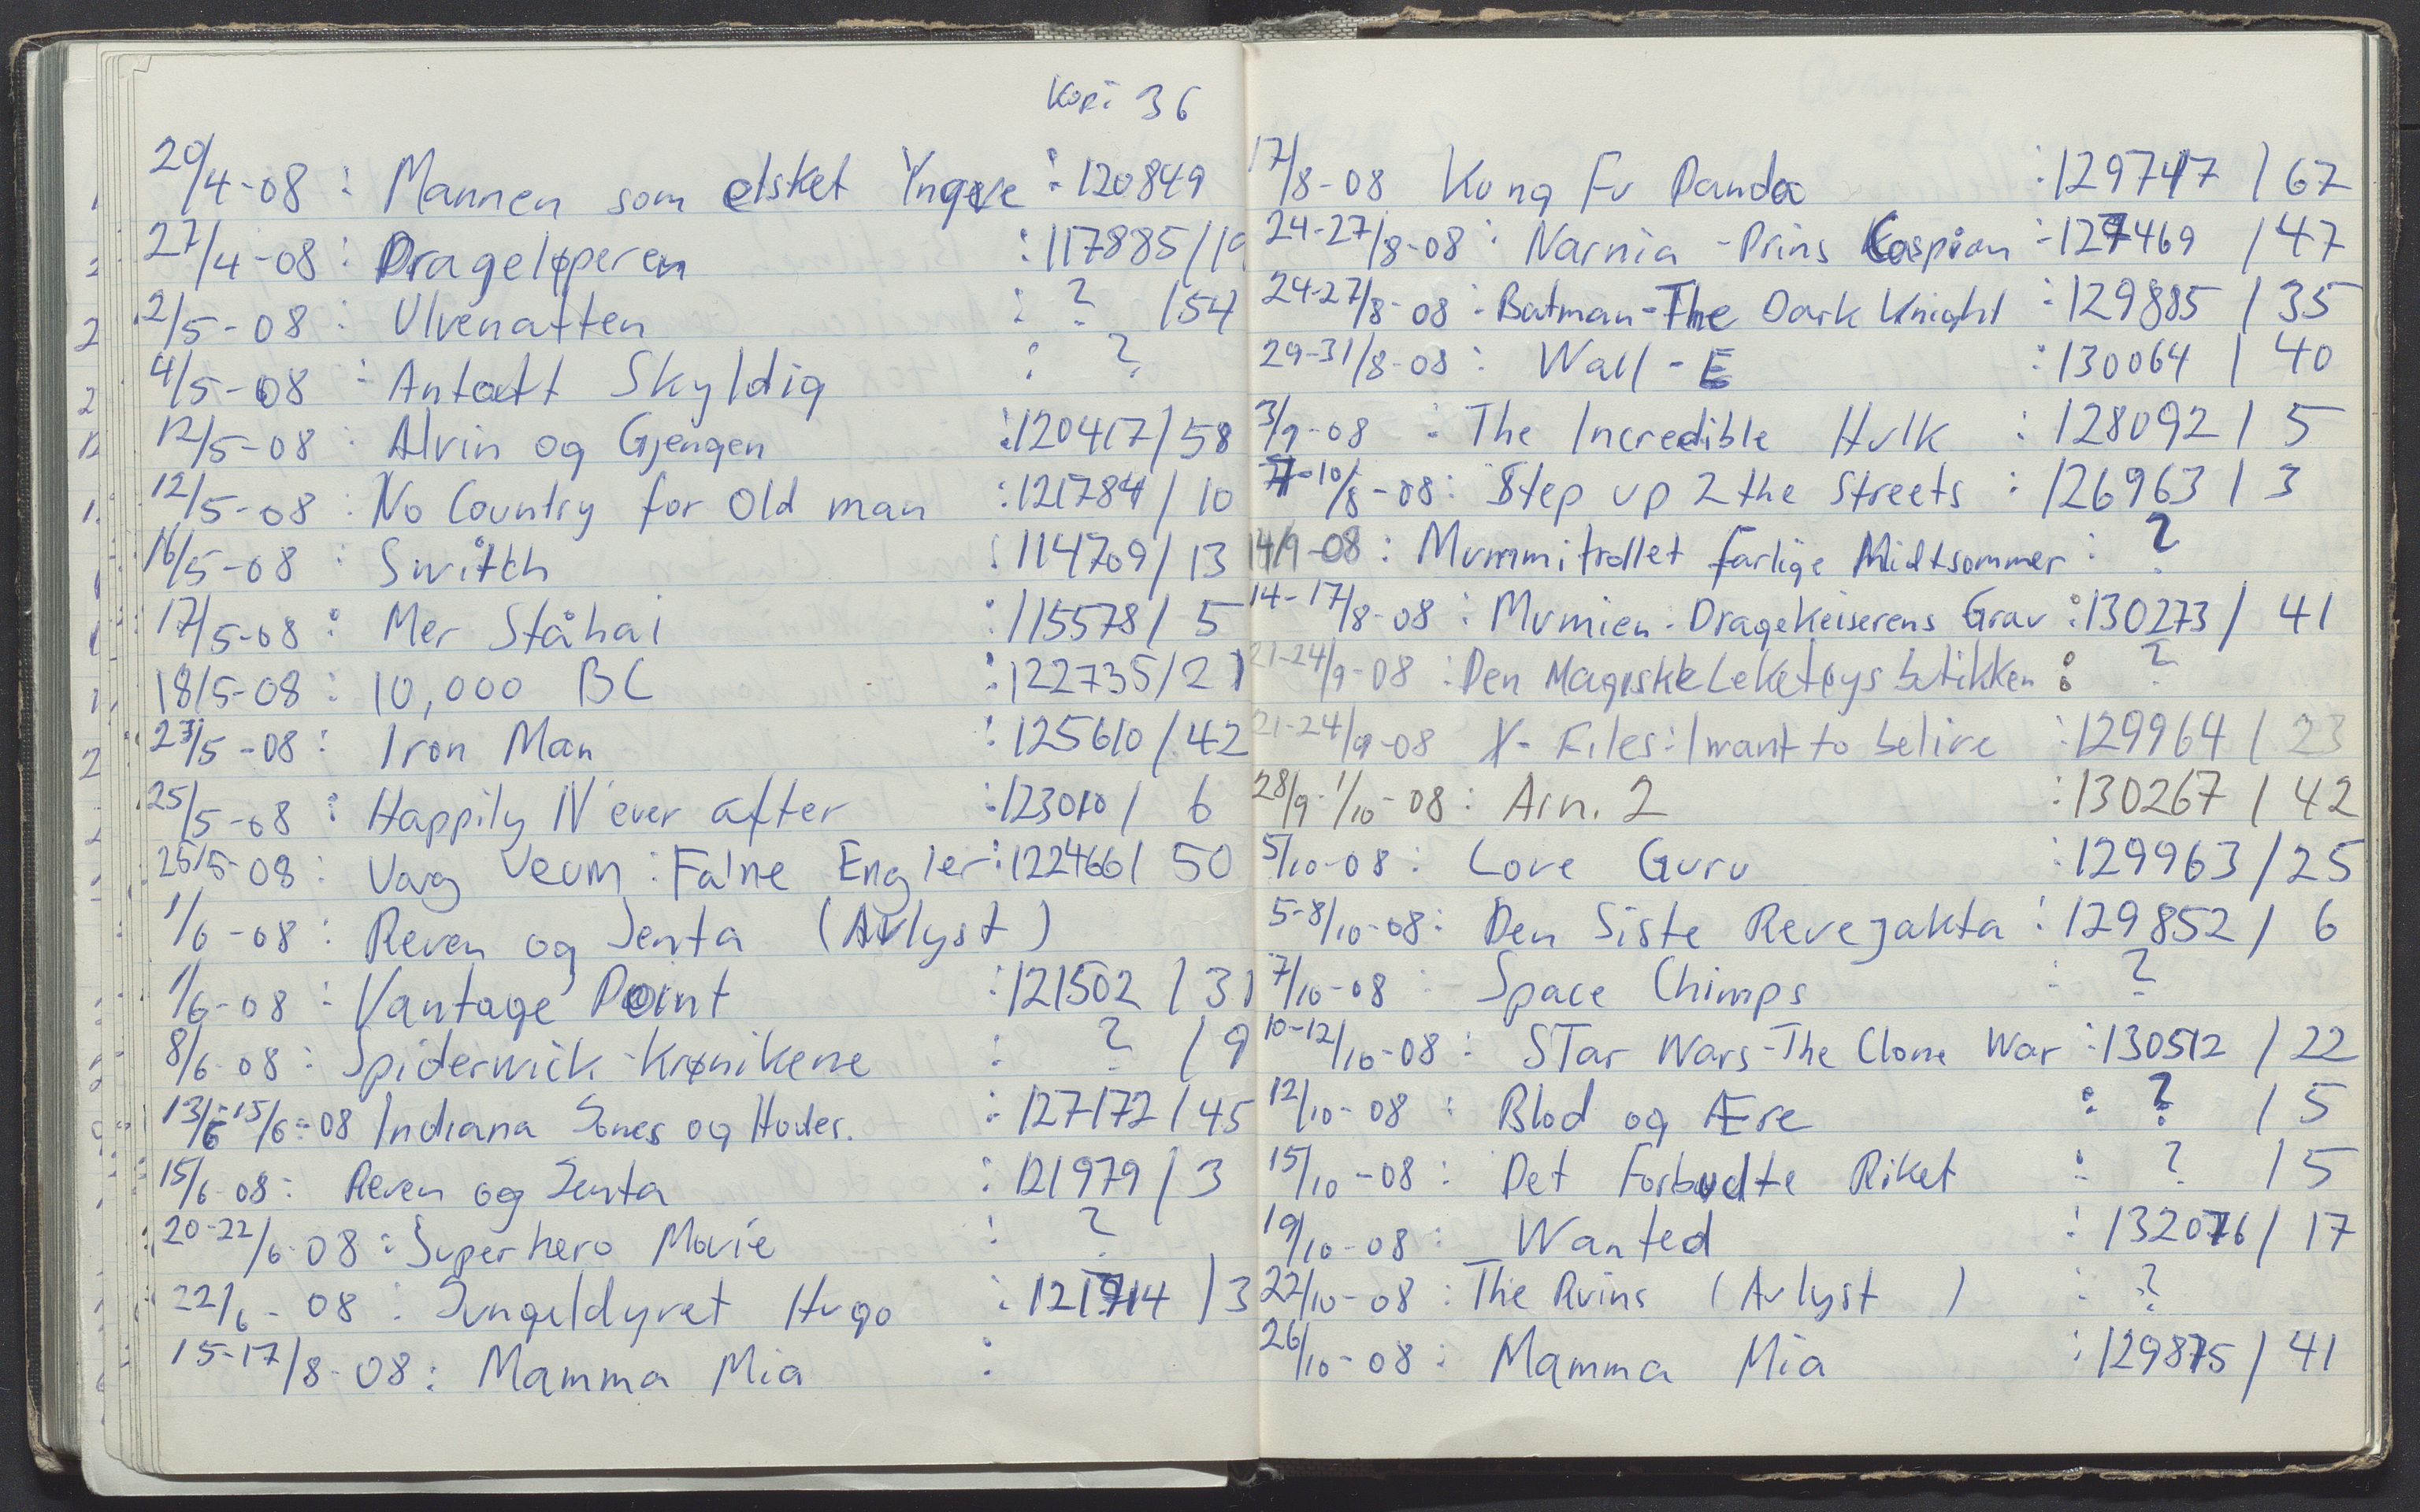 Kopi 36
20/4-08 : Mannen som elsket Yngve : 120849
27/4-08 : Drageløperen : 117885/19
2/5-08 : Ulvenatten : ? /54
4/5-08 : Antatt Skyldig : ?
12/5-08 : Alvin og Gjengen : 120417/58
12/5-08 : No Country for Old man : 121784/10
16/5-08 : Switch : 114709/13
17/5-08 : Mer Ståhai : 115578/5
18/5-08 : 10,000 BC : 122735/21
23/5-08 : Iron Man : 125610/42
25/5-08 : Happily N'ever after : 123010/6
25/5-08 : Varg Veum : Falne Engler : 122466/50
1/6-08 : Reven og Jenta (Avlyst)
1/6-08 : Vantage Point : 121502/31
8/6-08 : Spiderwick-Krønikene : ? /9
13/6-15/6-08 Indiana Jones og Hodes. : 127172/45
15/6-08 : Reven og Jenta : 121979/3
20-22/6-08 : Superhero Movie : ?
22/6-08 : Jungeldyret Hugo : /3
15-17/8-08 : Mamma Mia :
17/8-08 Kung Fu Panda : 129747/67
24-27/8-08 : Narnia - Prins Kaspian : 127469/47
24-27/8-08 : Batman - The Dark Knight : 129885/35
29-31/8-08 : Wall-E : 130064/40
3/9-08 : The Incredible Hulk : 128092/5
7-10/8-08 : Step up 2 the Streets : 126963/3
14/9-08 : Mummitrollet farlige Midtsommer : ?
14-17/8-08 : Mumien: Dragekeiserens Grav : 130273/41
21-24/9-08 : Den Magiske Leketøysbutikken : ?
21-24/9-08 X-Files: I want to belive : 129964/23
28/9-1/10-08 : Arn. 2 : 130267/42
5/10-08 : Love Guru : 129963/25
5-8/10-08 : Den Siste Revejakta : 129852/6
7/10-08 : Space Chimps : ?
10-12/10-08 : STar Wars-The Clone War : 130512/22
12/10-08 : Blod og Ære : ? /5
15/10-08 : Det Forbudte Riket : ? /5
19/10-08 : Wanted : 132076/17
22/10-08 : The Ruins (Avlyst) : ?
26/10-08 : Mamma Mia : 129875/41